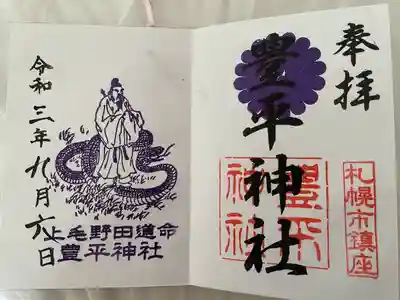 奉拝
豊平神社
豊平神社
札幌市鎮座
令和三年九月六日
上毛野田道命
豊平神社